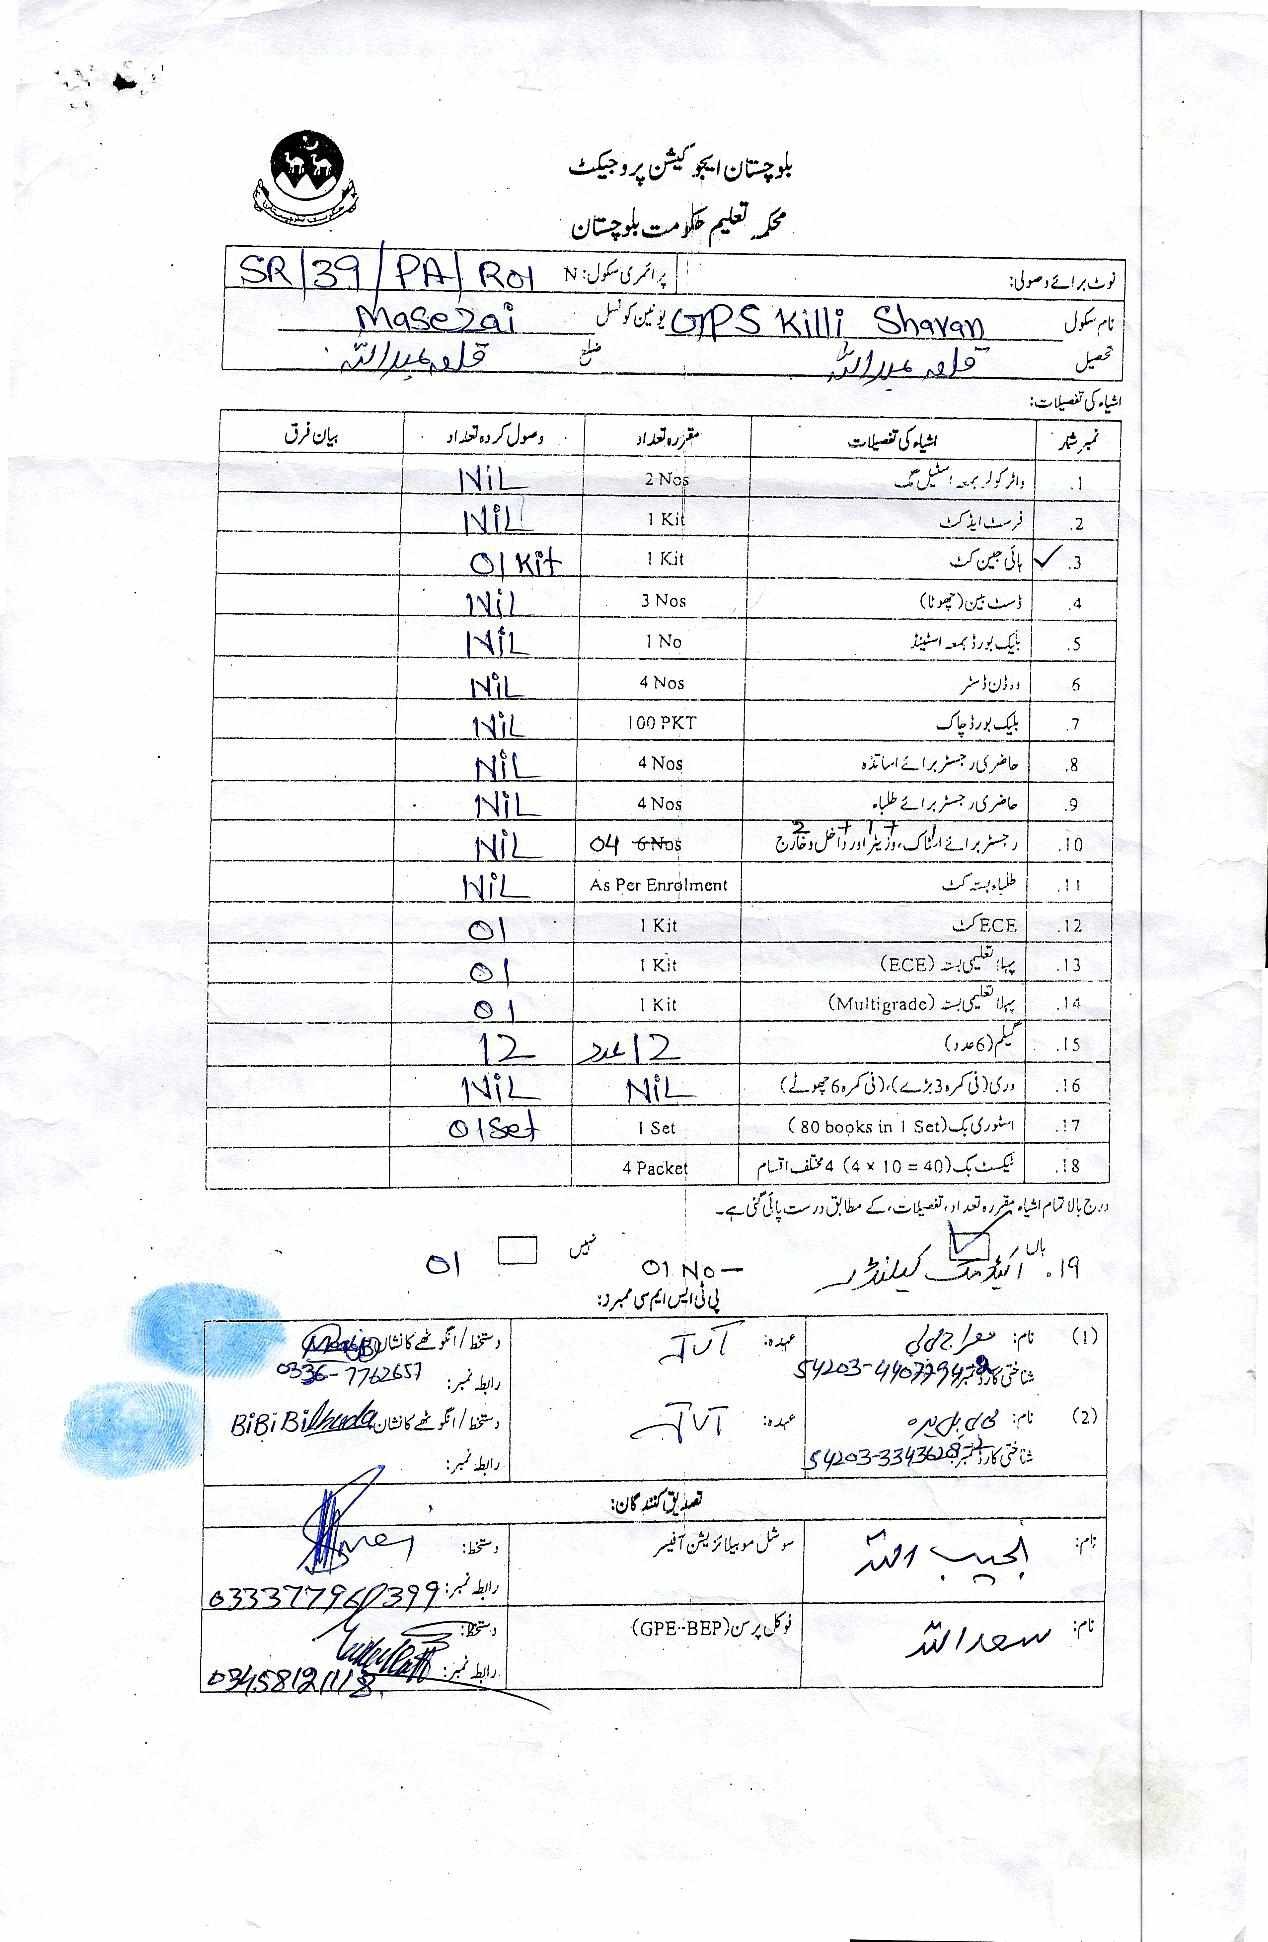 بلوچستان ایجوکیشن پروجیکٹ
محکمہ تعلیم حکومت بلوچستان
نوٹ برائے وصولی: پرائمری سکول: N SR/39/PA/R01
نام سکول GPS Killi Sharan یونین کونسل Masezai
تحصیل قلعہ عبداللہ ضلع قلعہ عبداللہ
اشیاء کی تفصیلات:
نمبر شمار اشیاء کی تفصیلات مقررہ تعداد وصول کردہ تعداد بیان فرق
.1 واٹر کولر بمعہ اسٹیل مگ 2 Nos NiL
.2 فرسٹ ایڈ کٹ 1 Kit NiL
.3 ✓ ہائی جین کٹ 1 Kit 01 Kit
.4 ڈسٹ بین (چھوٹا) 3 Nos NiL
.5 بلیک بورڈ بمعہ اسٹینڈ 1 No NiL
6 ووڈن ڈسٹر 4 Nos NiL
.7 بلیک بورڈ چاک 100 PKT NiL
.8 حاضری رجسٹر برائے اساتذہ 4 Nos NiL
.9 حاضری رجسٹر برائے طلباء 4 Nos NiL
.10 رجسٹر برائے اسٹاک، وزیٹر اور داخل و خارج 2 + 1 + 1 04 6 Nos NiL
.11 طلباء بستہ کٹ As Per Enrolment NiL
.12 ECE کٹ 1 Kit 01
.13 پہلا تعلیمی بستہ (ECE) 1 Kit 01
.14 پہلا تعلیمی بستہ (Multigrade) 1 Kit 01
.15 گیلم (6 عدد) 12 عدد 12
.16 دری (فی کمرہ 3 بڑے)، (فی کمرہ 6 چھوٹے) NiL NiL
.17 اسٹوری بک (80 books in 1 Set) 1 Set 01 Set
.18 ٹیکسٹ بک (4 x 10 = 40) 4 مختلف اقسام 4 Packet
درج بالا تمام اشیاء مقررہ تعداد، تفصیلات، کے مطابق درست پائی گئی ہے۔
ہاں ✓ نہیں
۔19 اکیڈمک کیلنڈر 01 No — 01
پی ٹی ایس ایم سی ممبرز:
(1) نام: عہدہ: دستخط/انگوٹھے کا نشان
شناختی کارڈ نمبر رابطہ نمبر: 0336-7762657
(2) نام: عہدہ: دستخط/انگوٹھے کا نشان BiBi
شناختی کارڈ نمبر رابطہ نمبر:
تصدیق کنندگان:
نام: سوشل موبیلائزیشن آفیسر دستخط:
رابطہ نمبر: 033377960399
نام: سعداللہ فوکل پرسن (GPE-BEP) دستخط:
رابطہ نمبر: 03458121118